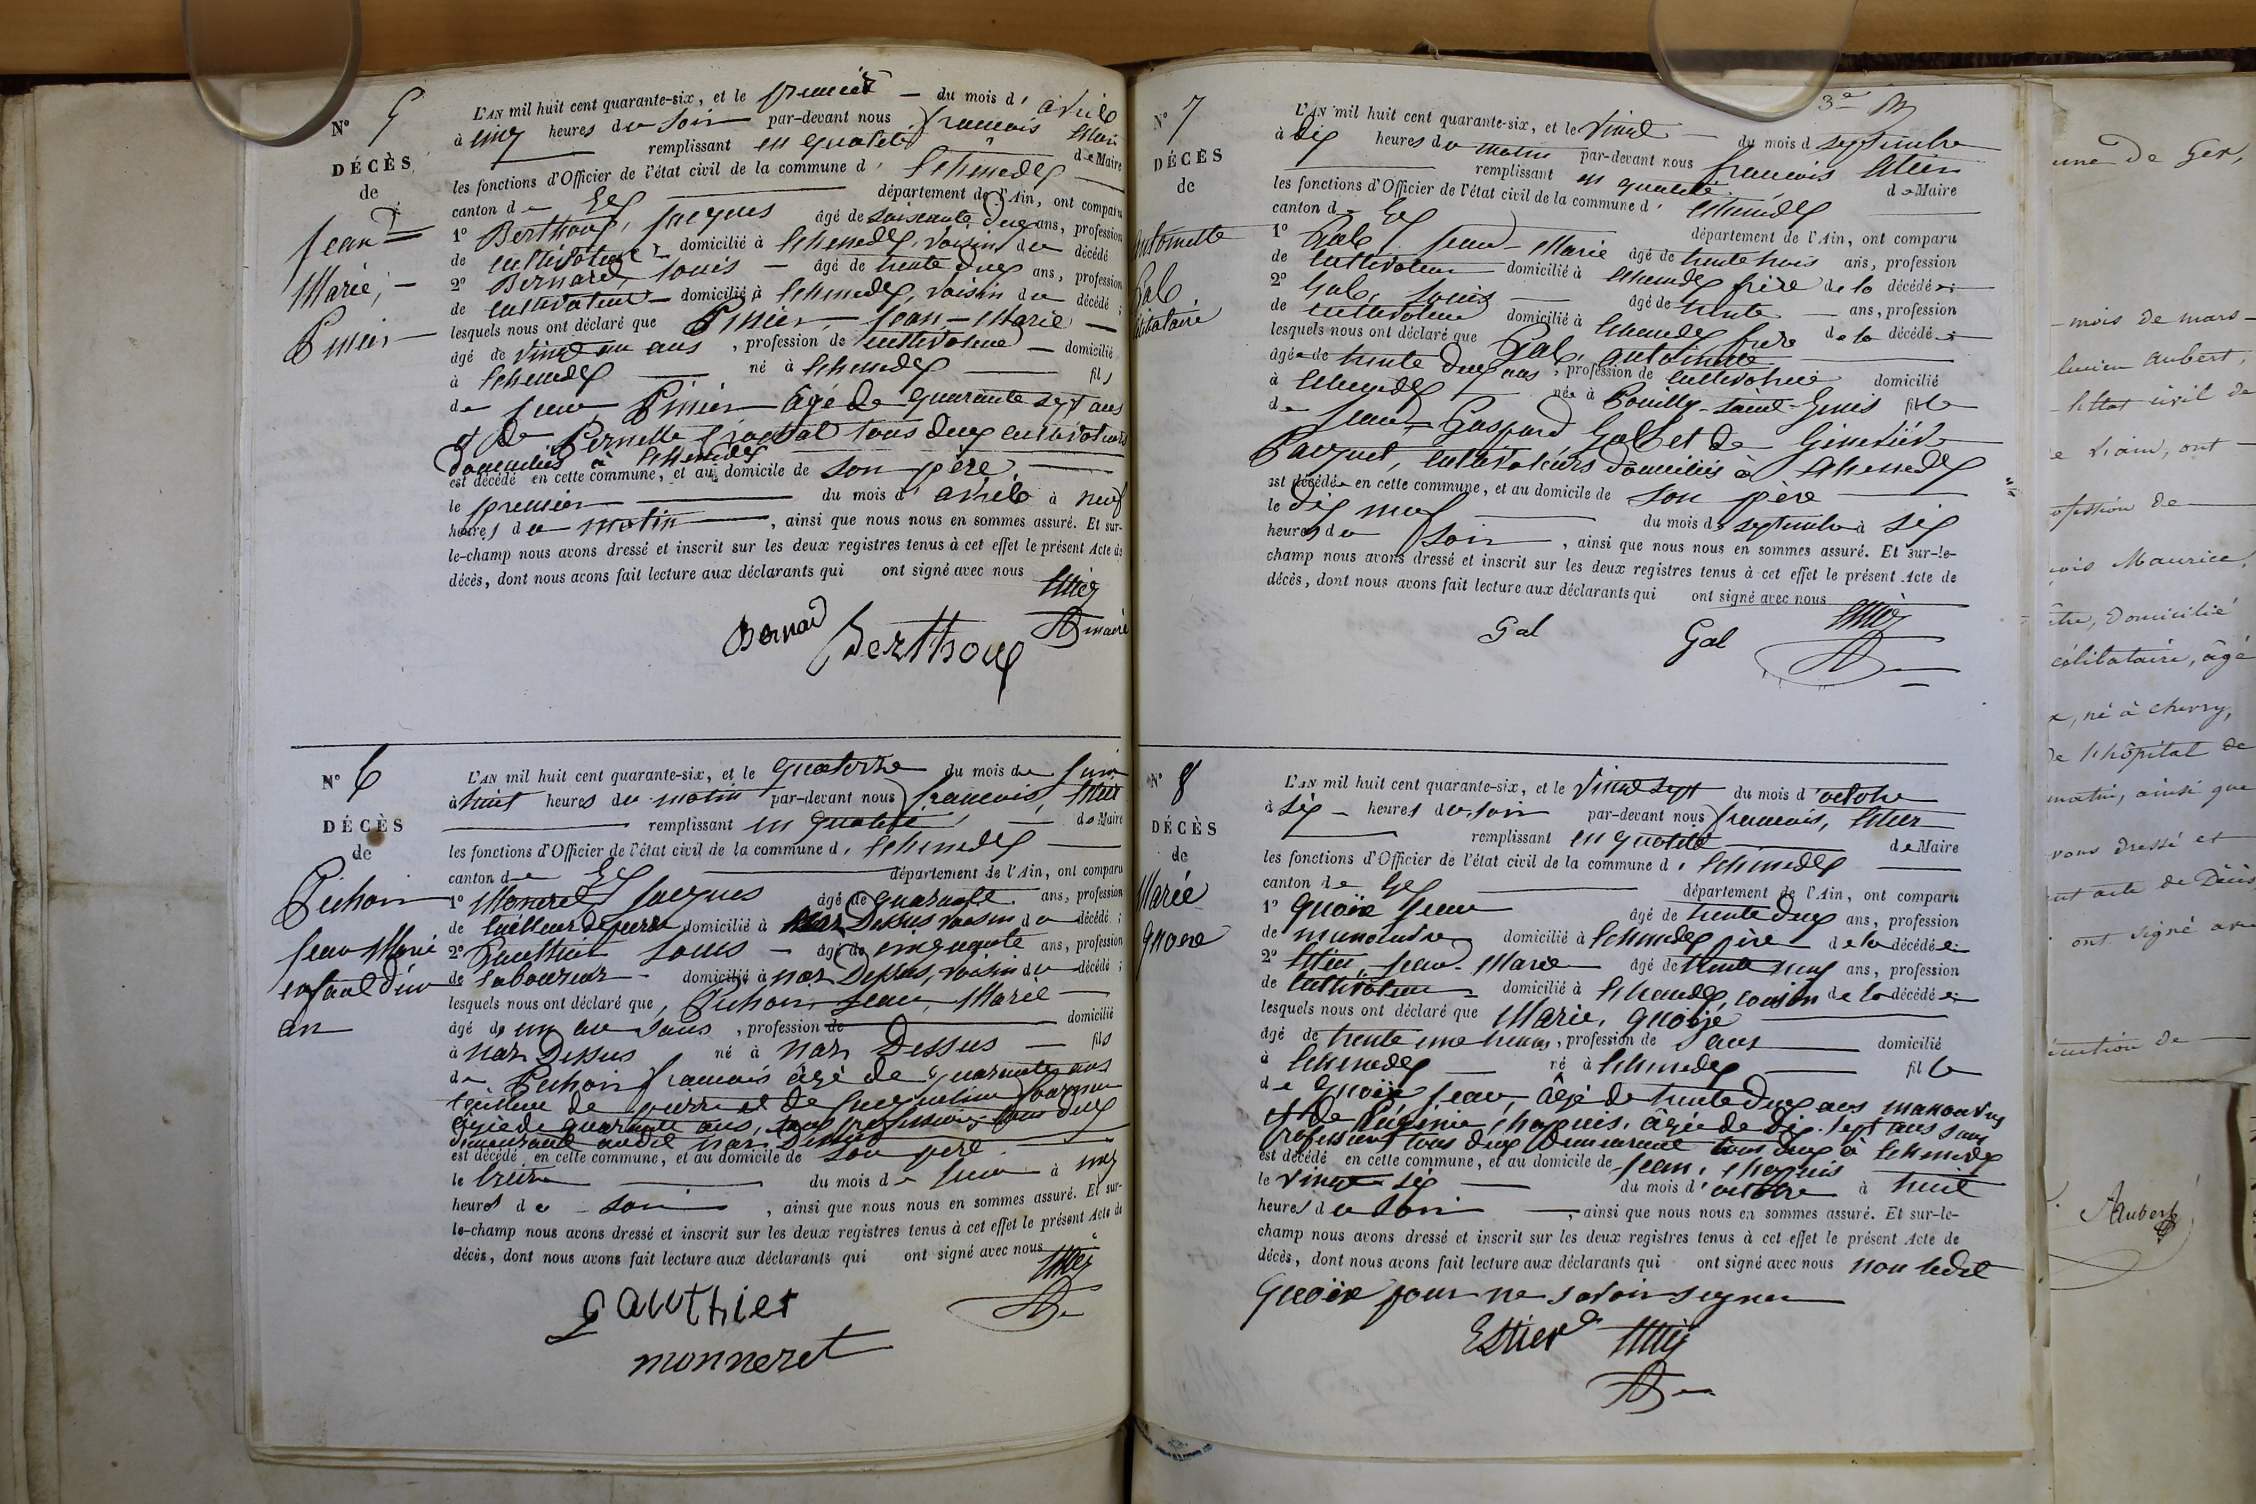 N° 5
DÉCÈS
de
Jean
Marie,
L'AN mil huit cent quarante-six, et le premier du mois d'avril
à cinq heures du soir par-devant nous françois
remplissant en qualité de Maire
les fonctions d'Officier de l'état civil de la commune d'Echenevex
canton de Gex département de l'Ain, ont comparu
1° Berthoux, Jacques âgé de soixante deux ans, profession
de cultivateur domicilié à Echenevex, voisin du décédé
2° Bernard, Louis âgé de trente deux ans, profession
de cultivateur domicilié à Echenevex, voisin du décédé ;
lesquels nous ont déclaré que Jean-Marie
âgé de vingt un ans, profession de cultivateur domicilié
à Echenevex né à Echenevex fils
de âgé de quarante sept ans
et de Pernette tous deux cultivateurs
domiciliés à Echenevex
est décédé en cette commune, et au domicile de son père
le premier du mois d'avril à neuf
heures du matin, ainsi que nous nous en sommes assuré. Et sur-
le-champ nous avons dressé et inscrit sur les deux registres tenus à cet effet le présent Acte de
décès, dont nous avons fait lecture aux déclarants qui ont signé avec nous
Bernard Berthoux maire
N° 6
DÉCÈS
de
Pichon
Jean Marie
enfant d'un
an
L'AN mil huit cent quarante-six, et le quatorze du mois de juin
à huit heures du matin par-devant nous françois,
remplissant en qualité de Maire
les fonctions d'Officier de l'état civil de la commune d'Echenevex
canton de Gex département de l'Ain, ont comparu
1° Monneret Jacques âgé de quarante ans, profession
de tailleur de pierre domicilié à Naz Dessus voisin du décédé ;
2° Gauthier Louis âgé de cinquante ans, profession
de laboureur domicilié à Naz Dessus, voisin du décédé ;
lesquels nous ont déclaré que Pichon Jean, Marie
âgé de un an sans, profession de domicilié
à Naz Dessus né à Naz Dessus fils
de Pichon françois âgé de quarante ans
tailleur de pierre et de Jacqueline
âgée de quarante ans, sans profession, tous deux
demeurant audit Naz Dessus
est décédé en cette commune, et au domicile de son père
le treize du mois de juin à cinq
heures du soir, ainsi que nous nous en sommes assuré. Et sur-
le-champ nous avons dressé et inscrit sur les deux registres tenus à cet effet le présent Acte de
décès, dont nous avons fait lecture aux déclarants qui ont signé avec nous
Gauthier
monneret
N° 7
DÉCÈS
de
Antoinette
Gal
célibataire
L'AN mil huit cent quarante-six, et le vingt du mois de septembre
à dix heures du matin par-devant nous françois
remplissant en qualité de Maire
les fonctions d'Officier de l'état civil de la commune d'Echenevex
canton de Gex département de l'Ain, ont comparu
1° Gal Jean-Marie âgé de trente trois ans, profession
de cultivateur domicilié à Echenevex frère de la décédée
2° Gal, Louis âgé de trente ans, profession
de cultivateur domicilié à Echenevex frère de la décédée
lesquels nous ont déclaré que Gal, antoinette
âgée de trente deux ans, profession de cultivatrice domicilié
à Echenevex née à Pouilly-Saint-Genis fille
de Jean-Gaspard Gal et de Geneviève
Paquet, cultivateurs domiciliés à Echenevex
est décédée en cette commune, et au domicile de son père
le dix neuf du mois de septembre à six
heures du soir, ainsi que nous nous en sommes assuré. Et sur-le-
champ nous avons dressé et inscrit sur les deux registres tenus à cet effet le présent Acte de
décès, dont nous avons fait lecture aux déclarants qui ont signé avec nous
Gal Gal
N° 8
DÉCÈS
de
Marie
L'AN mil huit cent quarante-six, et le vingt sept du mois d'octobre
à six heures du soir par-devant nous françois,
remplissant en qualité de Maire
les fonctions d'Officier de l'état civil de la commune d'Echenevex
canton de Gex département de l'Ain, ont comparu
1° Jean âgé de trente deux ans, profession
de manoeuvre domicilié à Echenevex père de la décédée
2° Jean-Marie âgé de trente neuf ans, profession
de cultivateur domicilié à Echenevex, voisin de la décédée
lesquels nous ont déclaré que Marie,
âgé de trente une heures, profession de sans domicilié
à Echenevex né à Echenevex fille
de Jean, âgé de trente deux ans manoeuvre
et de chapuis, âgée de dix sept ans sans
profession tous deux demeurant tous deux à Echenevex
est décédé en cette commune, et au domicile de Jean, chapuis
le vingt six du mois d'octobre à huit
heures du soir, ainsi que nous nous en sommes assuré. Et sur-le-
champ nous avons dressé et inscrit sur les deux registres tenus à cet effet le présent Acte de
décès, dont nous avons fait lecture aux déclarants qui ont signé avec nous non ledit
pour ne savoir signer
Estier
de Gex,
mois de mars
aubert,
l'état civil de
l'ain, ont
profession de
Maurice,
domicilié
célibataire, âgé
né à chevry,
de l'hôpital de
matin, ainsi que
avons dressé et
acte de Décès
ont signé avec
Aubert